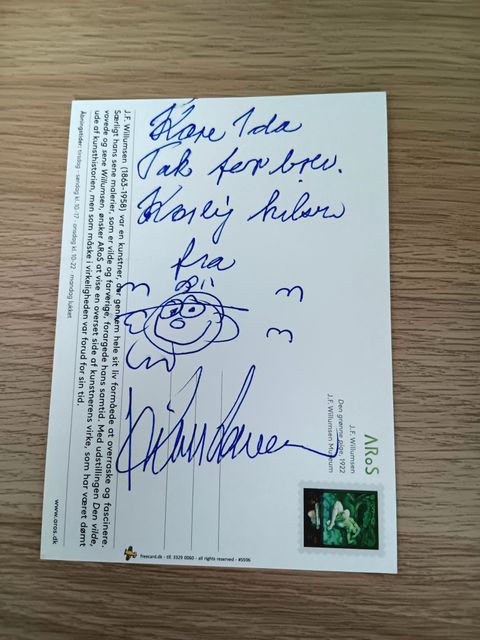 Kære Ida
Tak for brev.
Kærlig hilsen
fra
J.F. Willumsen (1863-1958) var en kunstner, der gennem hele sit liv formåede at overraske og fascinere.
Særligt hans sene malerier, som er vilde og farverige, forargede hans samtid. Med udstillingen Den vilde,
vovede og sene Willumsen, ønsker ARoS at vise en overset side af kunstnerens virke, som har været dømt
ude af kunsthistorien, men som måske i virkeligheden var forud for sin tid.
Åbningstider: tirsdag - søndag kl. 10-17 · onsdag kl. 10-22 · mandag lukket
www.aros.dk
ARoS
J.F. Willumsen
Den grønne pige, 1922
J.F. Willumsen Museum
freecard.dk - tlf. 3329 0060 - all rights reserved - #5596